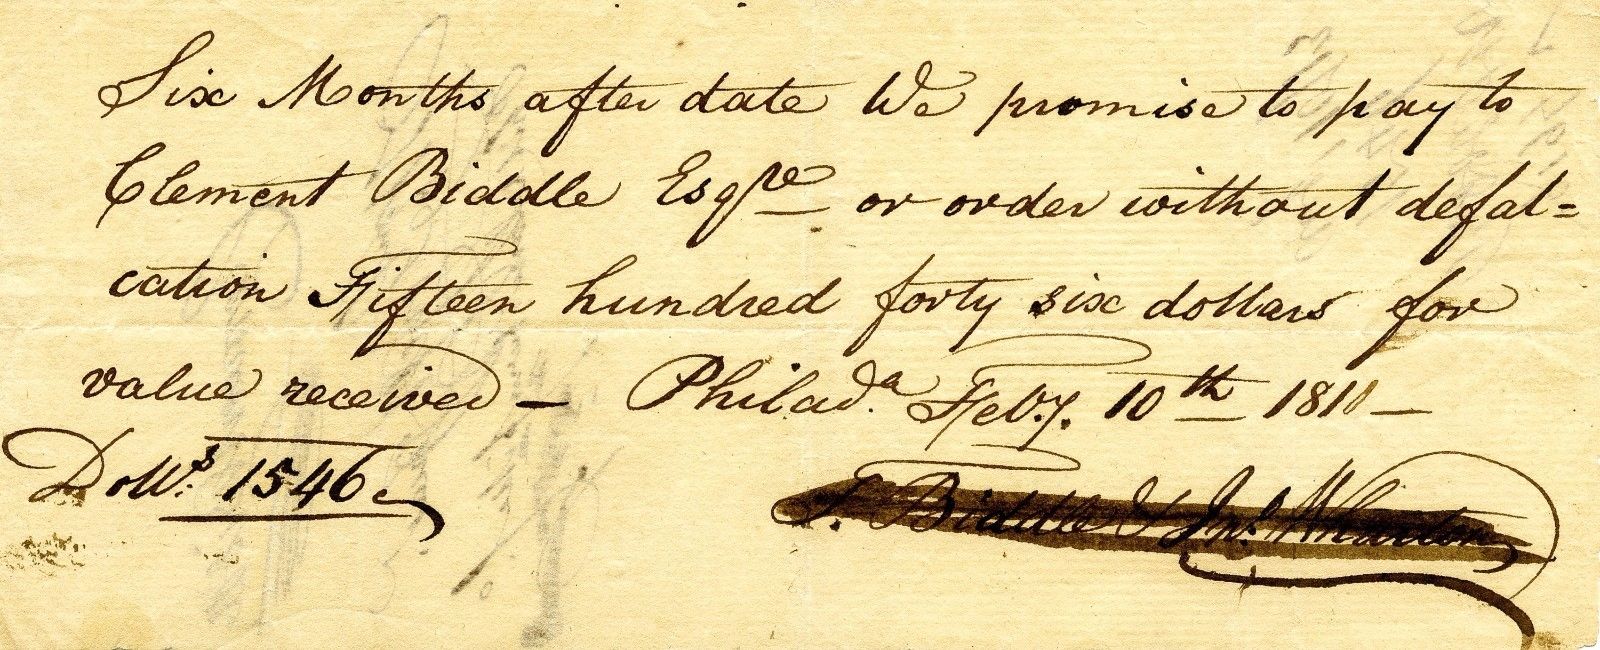 Six Months after date We promise to pay to
Clement Biddle Esqre or order without defal=
cation Fifteen hundred forty six dollars for
value received - Philada. Feby. 10th 1810 -
Dolls. 1546
T. Biddle & Jno. Wharton